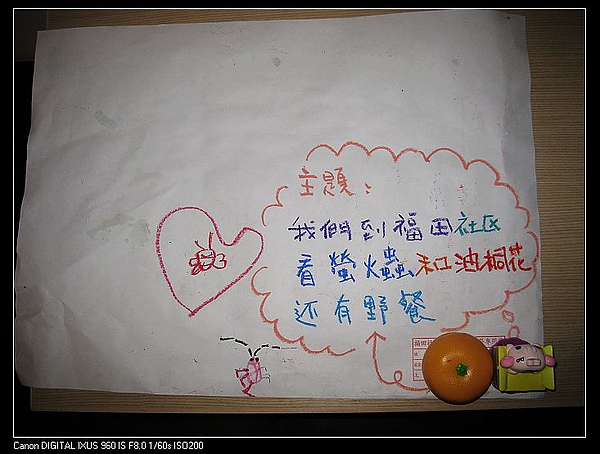 主題:
我們到福田社区
看螢火蟲和油桐花
还有野餐
Canon DIGITAL IXUS 960 IS F8.0 1/60s ISO200